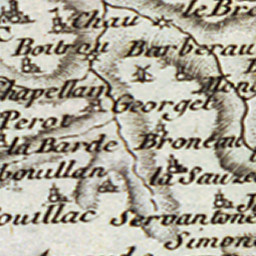 le Bre
Chau
Boutrou Barberau
Chapellain
Georget
Perot
la Barde Broneau
bouillan
la Sauze
ouillac Servantone
Simone